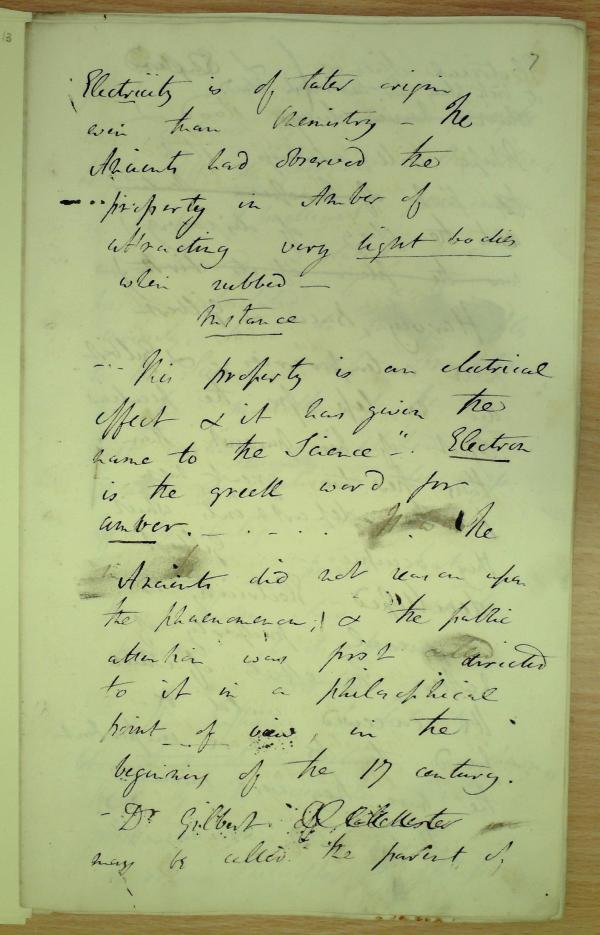 13
7
Electricity is of later origin
even than Chemistry - The
Ancients had observed the
property in Amber of
attracting very light bodies
when rubbed -
Instance
- This property is an electrical
effect & it has given the
name to the Science -. Electron
is the greek word for
amber. - - . . The
Ancients did not reason upon
the phaenomenon, & the public
attention was first directed
to it in a philosophical
point of view, in the
beginning of the 17 century.
- Dr Gilbert of Colchester
may be called the parent of